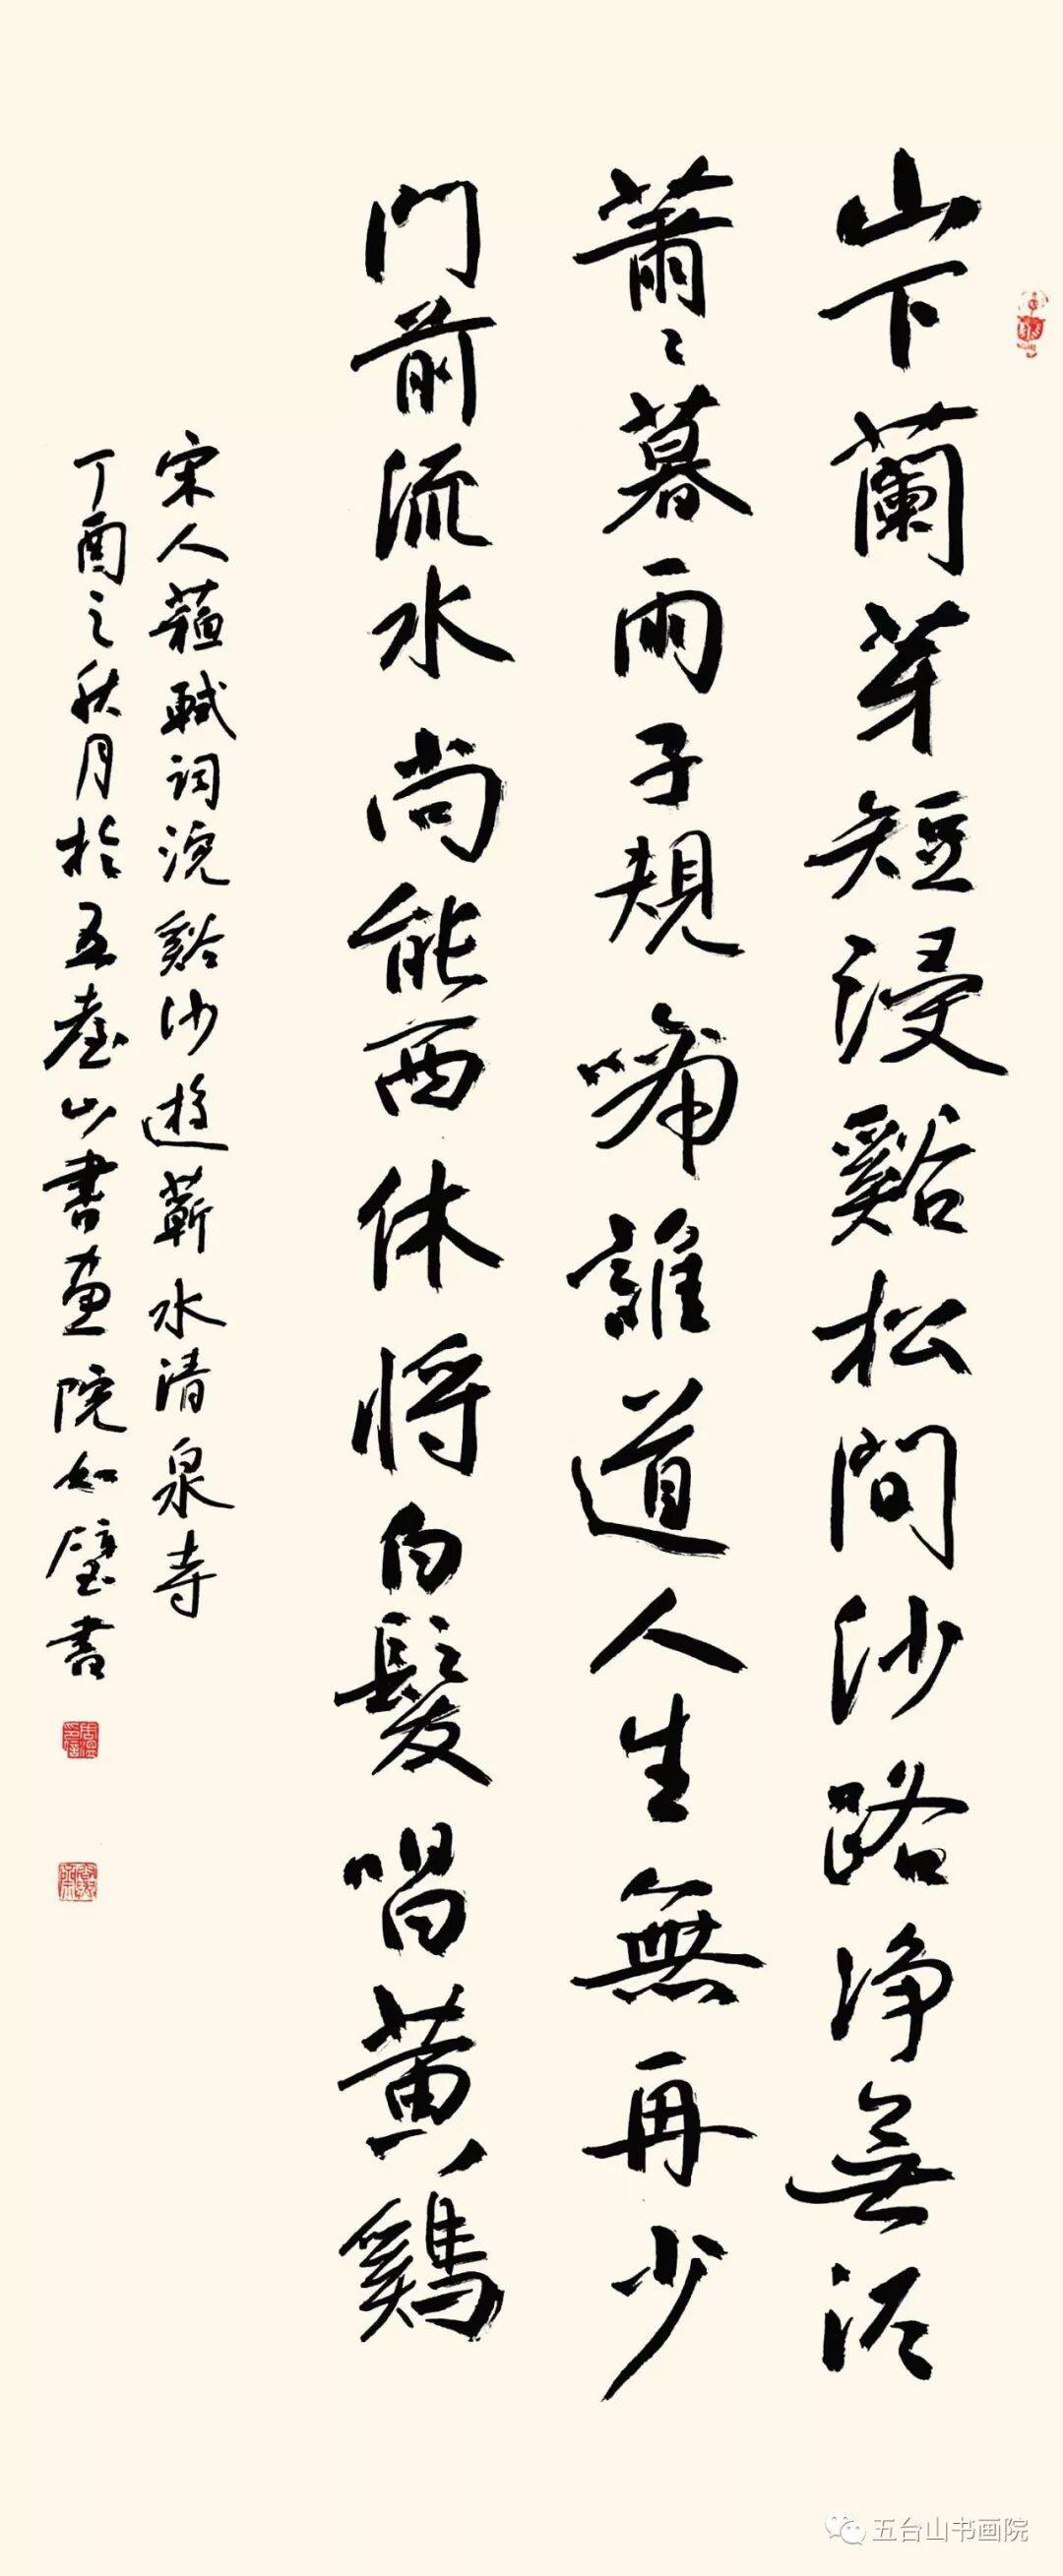 山下蘭芽短浸谿松間沙路淨無泥
蕭〻暮雨子規啼誰道人生無再少
門前流水尚能西休將白髮唱黄鷄
宋人蘇軾詞浣谿沙遊蘄水清泉寺
丁酉之秋月於五臺山書画院如璧書
五台山书画院